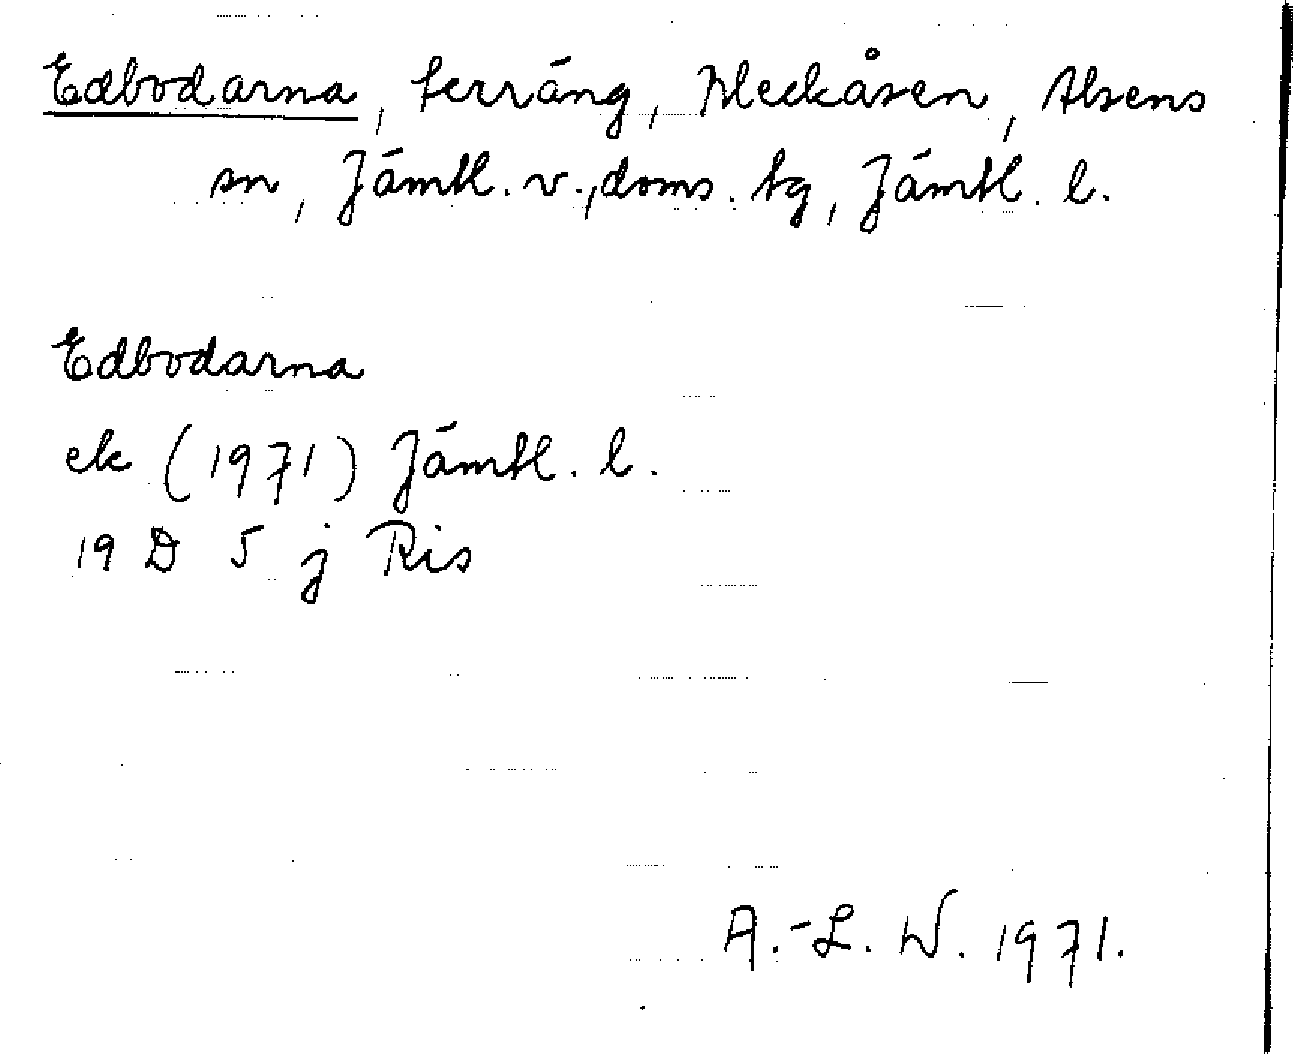 Edbodarna, terräng, Bleckåsen, Alsens
sn, Jämtl. v., doms. tg, Jämtl. l.
Edbodarna
ek (1971) Jämtl. l.
19 D 5 j Ris
A.-L. W. 1971.